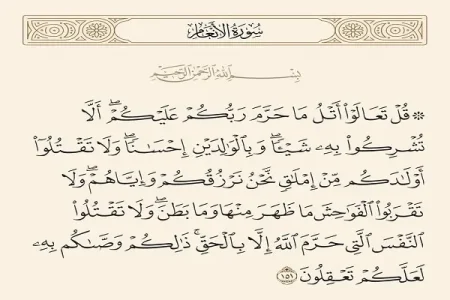 سُورَةُ الأَنْعَام
بِسْمِ اللَّهِ الرَّحْمَٰنِ الرَّحِيمِ
۞ قُلْ تَعَالَوْا۟ أَتْلُ مَا حَرَّمَ رَبُّكُمْ عَلَيْكُمْ ۖ أَلَّا
تُشْرِكُوا۟ بِهِۦ شَيْـًٔا ۖ وَبِالْوَٰلِدَيْنِ إِحْسَٰنًا ۖ وَلَا تَقْتُلُوٓا۟
أَوْلَٰدَكُم مِّنْ إِمْلَٰقٍ ۖ نَّحْنُ نَرْزُقُكُمْ وَإِيَّاهُمْ ۖ وَلَا
تَقْرَبُوا۟ الْفَوَٰحِشَ مَا ظَهَرَ مِنْهَا وَمَا بَطَنَ ۖ وَلَا تَقْتُلُوا۟
النَّفْسَ الَّتِي حَرَّمَ اللَّهُ إِلَّا بِالْحَقِّ ۚ ذَٰلِكُمْ وَصَّىٰكُم بِهِۦ
لَعَلَّكُمْ تَعْقِلُونَ ١٥١